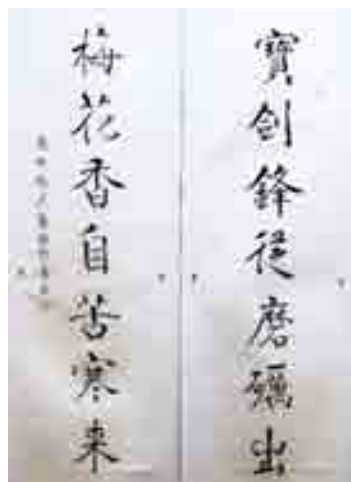 寶剑鋒從磨礪出
梅花香自苦寒来